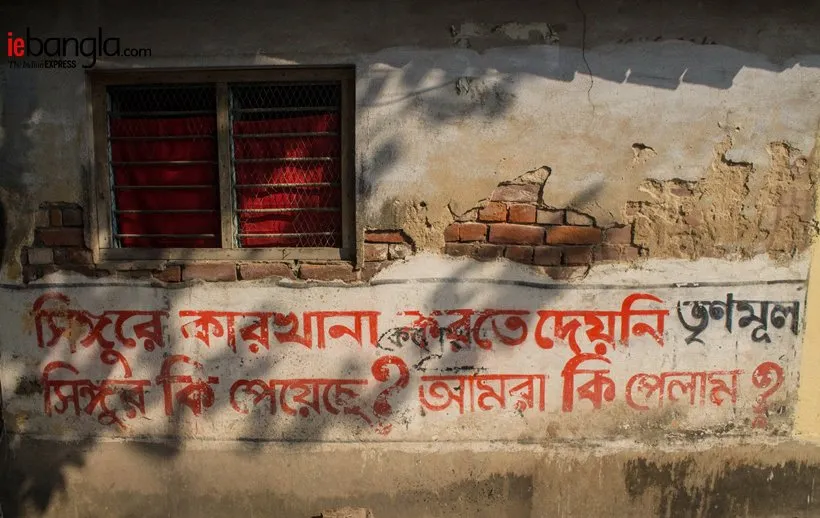 iebangla.com
The Indian EXPRESS
সিঙ্গুরে কারখানা করতে দেয়নি তৃণমূল
সিঙ্গুর কি পেয়েছে? আমরা কি পেলাম?